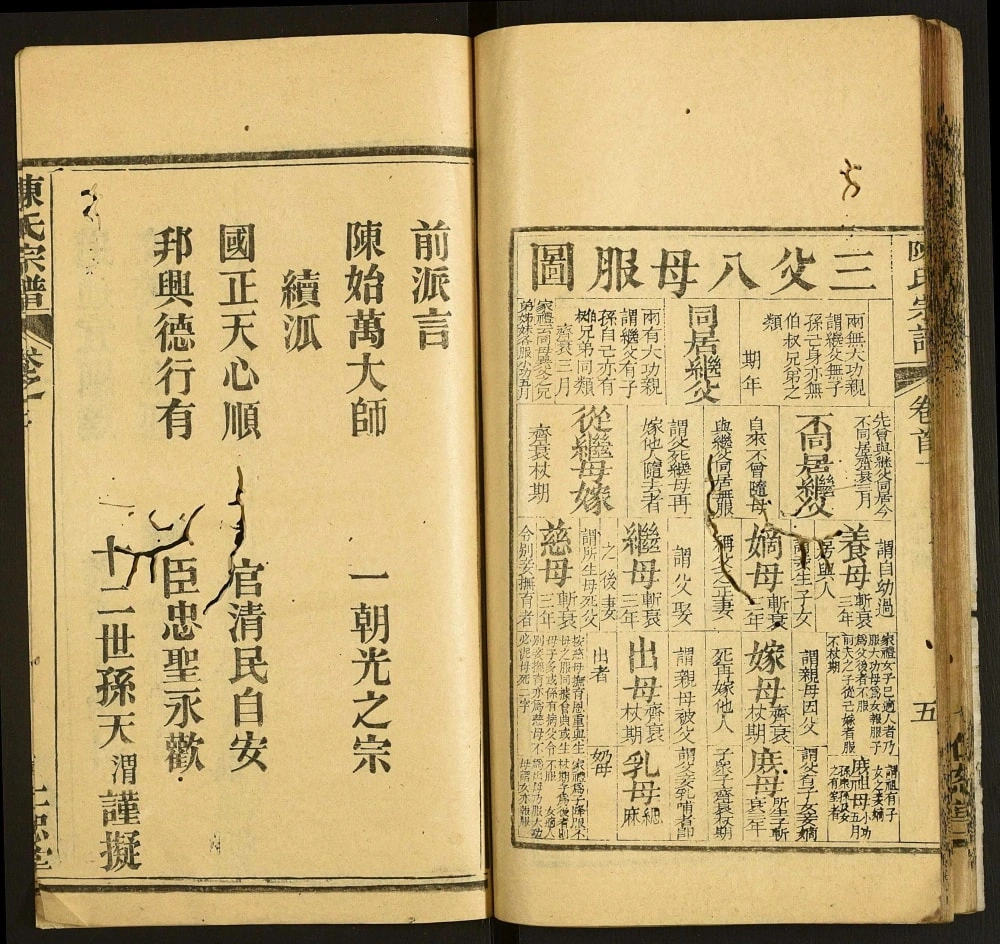 三父八母服圖
兩無大功親
謂繼父無子
孫己身亦無
伯叔兄弟之
類
期年
同居繼父
兩有大功親
謂繼父有子
孫自己亦有
伯兄弟同類
齊衰三月
家禮云同母異父之兄
弟姊妹各服小功五月
先曾與繼父同居今
不同居齊衰三月
不同居繼父
自來不曾隨母
與繼父同居無服
謂父死繼母再
嫁他人隨去者
從繼母嫁
齊衰杖期
謂自幼過
房與人
養母
斬衰
三年
謂妾生子女
稱父之正妻
嫡母
斬衰
三年
謂父娶
之後妻
繼母
斬衰
三年
謂所生母死父
令別妾撫育者
慈母
斬衰
三年
家禮女子已適人者乃
服大功母為女報服子
為父後者不服
前夫之子從己嫁者服
不杖期
謂親母因父
死再嫁他人
嫁母
齊衰
杖期
謂親母被父
出者
出母
齊衰
杖期
謂祖有子
女之妾
庶祖母
小功
五月
謂父有子女妾嫡
子眾子齊衰杖期
庶母
所生子斬
衰三年
謂父妾乳哺者即
奶母
乳母
緦
麻
陳氏宗譜
卷首
五
前派言
陳始萬大師 一朝光之宗
續派
國正天心順 官清民自安
邦興德行有 臣忠聖永歡
十二世孫天渭謹擬
陳氏宗譜